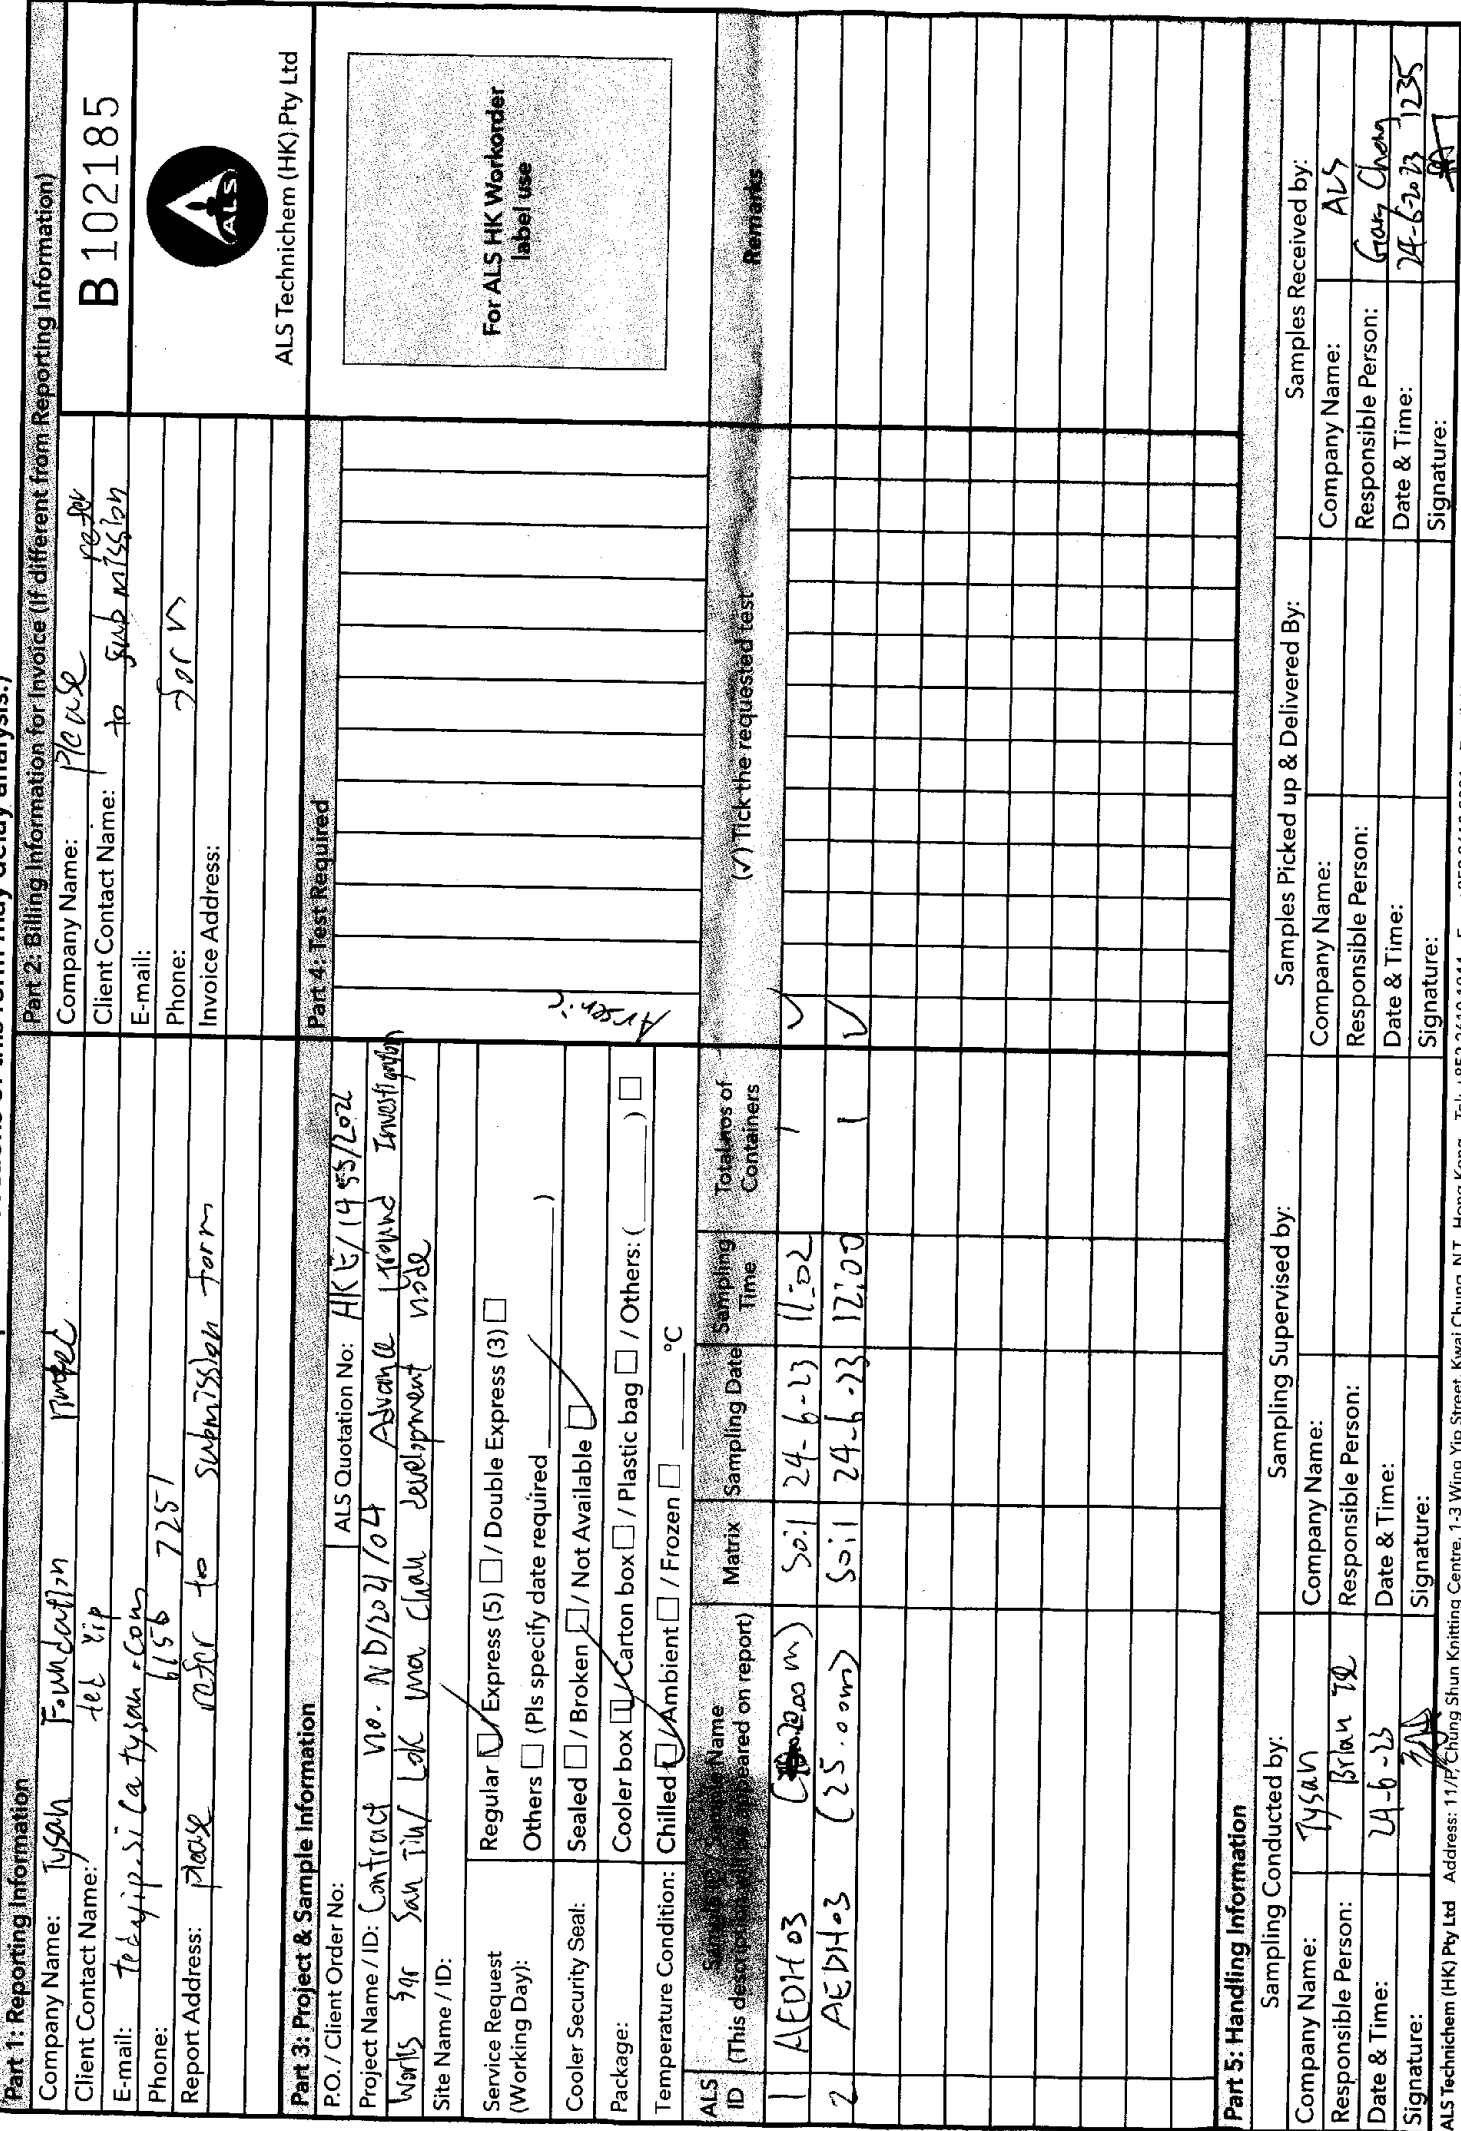 Part 1: Reporting Information
Company Name: Tysan Foundation limited
Client Contact Name: ted Yip
E-mail: tedyip.si@tysan.com
Phone: 6156 7251
Report Address: please refer to submission form
Part 2: Billing Information for Invoice (If different from Reporting Information)
Company Name: Please refer
Client Contact Name: to submission
E-mail:
Phone: form
Invoice Address:
B 102185
ALS
ALS Technichem (HK) Pty Ltd
Part 3: Project & Sample Information
P.O. / Client Order No:
ALS Quotation No: HKE/1455/2021
Project Name / ID: Contract no. ND/2021/04 Advance Ground Investigation
Works for San Tin/ Lok ma Chau development node
Site Name / ID:
Service Request
(Working Day):
Regular ☑ / Express (5) □ / Double Express (3) □
Others □ (Pls specify date required ________ )
Cooler Security Seal: Sealed □ / Broken □ / Not Available ☑
Package: Cooler box ☑ / Carton box □ / Plastic bag □ / Others: ( ________ ) □
Temperature Condition: Chilled ☑ / Ambient □ / Frozen □ ________ °C
Part 4: Test Required
Arsenic
For ALS HK Workorder
label use
ALS
ID
Sample No / Sample Name
(This description will be appeared on report)
Matrix
Sampling Date
Sampling
Time
Total nos of
Containers
(√) Tick the requested test
Remarks
1 AEDH03 (20.00m) Soil 24-6-23 11:02 1 √
2 AEDH03 (25.00m) Soil 24-6-23 12:00 1 √
Part 5: Handling Information
Sampling Conducted by:
Company Name: Tysan
Responsible Person: Brian
Date & Time: 24-6-23
Signature:
Sampling Supervised by:
Company Name:
Responsible Person:
Date & Time:
Signature:
Samples Picked up & Delivered By:
Company Name:
Responsible Person:
Date & Time:
Signature:
Samples Received by:
Company Name: ALS
Responsible Person: Gary Chong
Date & Time: 24-6-2023 1235
Signature:
ALS Technichem (HK) Pty Ltd Address: 11/F, Chung Shun Knitting Centre, 1-3 Wing Yip Street, Kwai Chung, N.T. Hong Kong